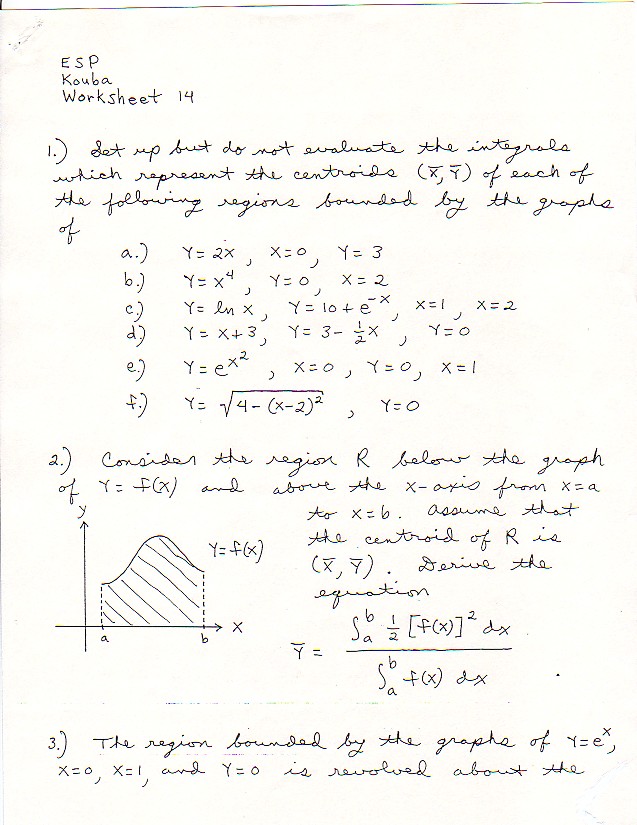 ESP
Kouba
Worksheet 14
1.) Set up but do not evaluate the integrals
which represent the centroids (X̄, Ȳ) of each of
the following regions bounded by the graphs
of
a.) Y = 2x , X = 0 , Y = 3
b.) Y = x⁴ , Y = 0 , X = 2
c.) Y = ln x , Y = 10 + e⁻ˣ , X = 1 , X = 2
d.) Y = x + 3 , Y = 3 - ½x , Y = 0
e.) Y = e^x² , X = 0 , Y = 0 , X = 1
f.) Y = √(4 - (x-2)²) , Y = 0
2.) Consider the region R below the graph
of Y = f(x) and above the x-axis from x = a
to x = b. Assume that
the centroid of R is
(X̄, Ȳ). Derive the
equation
Ȳ = ∫ₐᵇ ½ [f(x)]² dx / ∫ₐᵇ f(x) dx .
y
Y = f(x)
a b x
3.) The region bounded by the graphs of Y = eˣ,
X = 0, X = 1, and Y = 0 is revolved about the